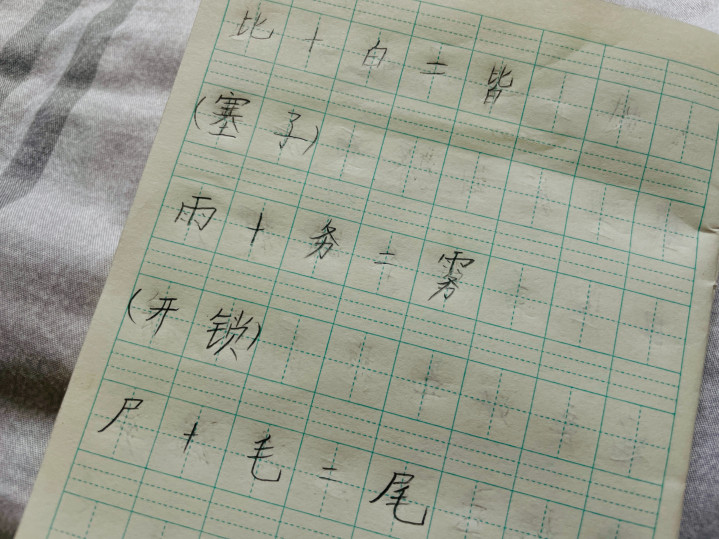 比+白=皆
(塞子)
雨+务=雾
(开锁)
尸+毛=尾